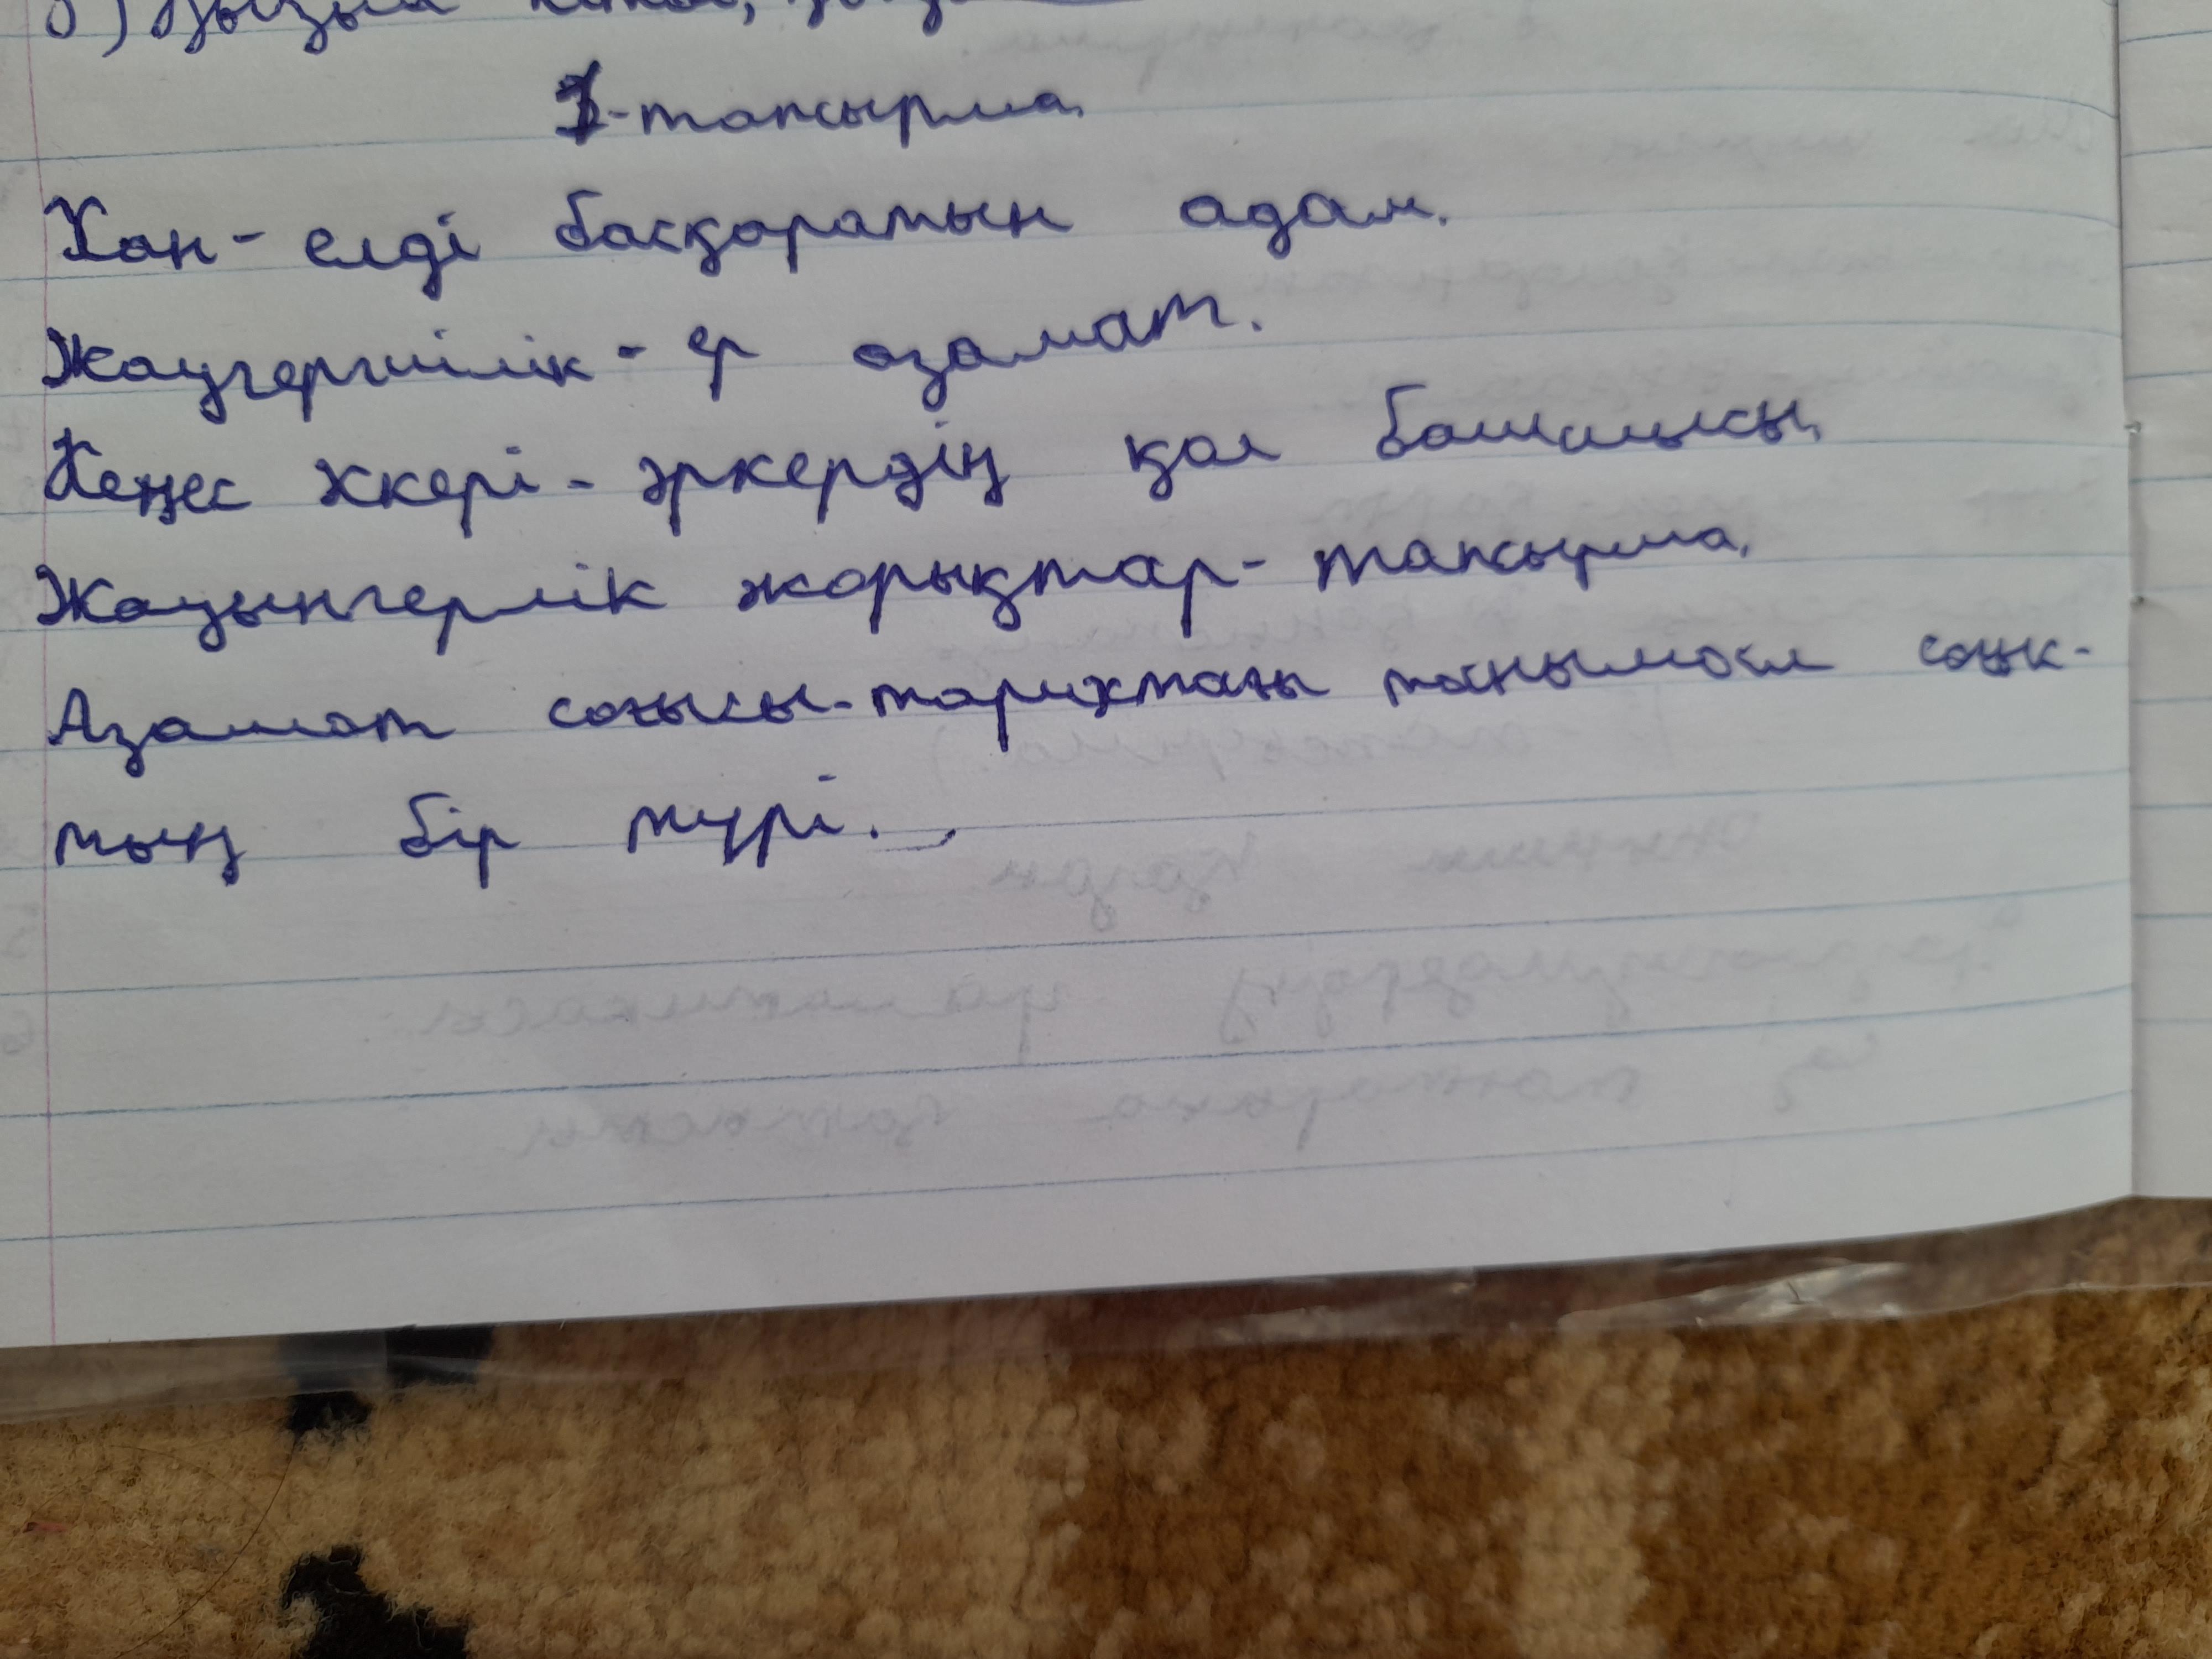 1-тапсырма.
Хан - елді басқаратын адам.
Жаугершілік - ер азамат.
Кеңес әскері - әркердің қол башшысы.
Жауынгерлік жорықтар - тапсырма.
Азамат соғысы - тарихтағы танымал соғыс-
тың бір түрі.